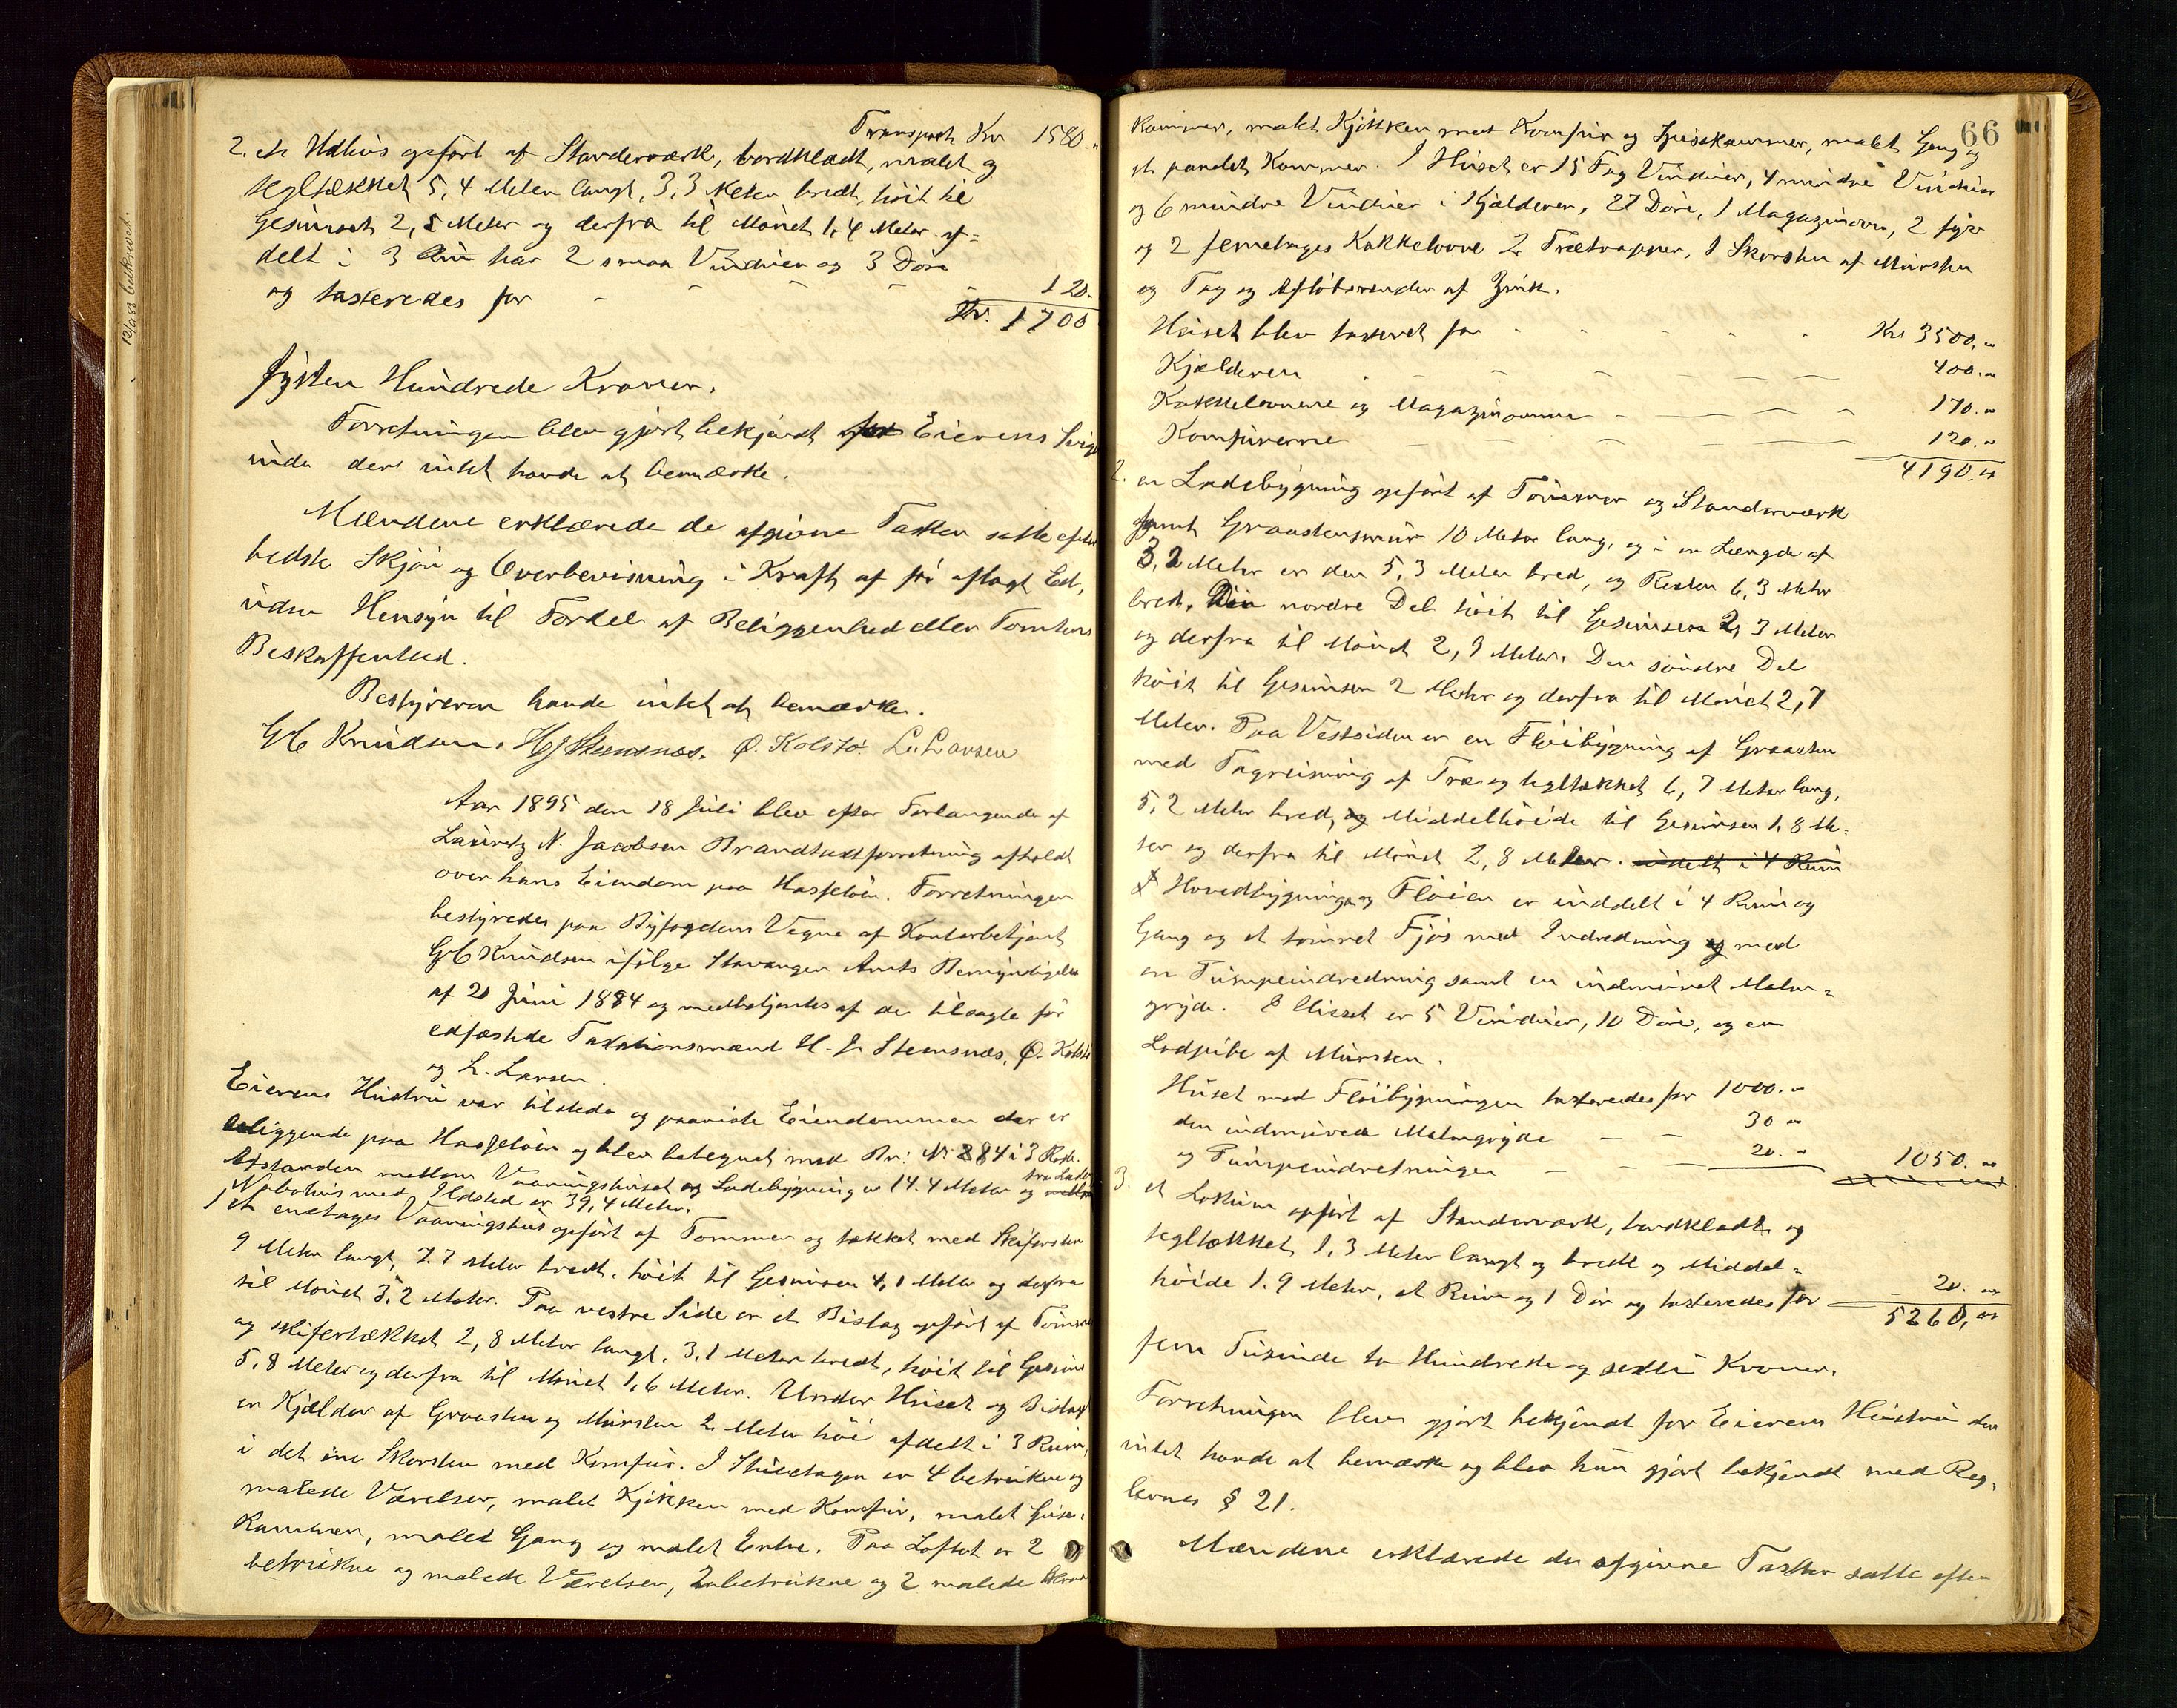 Transport Kr 1580.
2. et Udhus opført af Standerværk, bordklædt, malet og
tegltækket 5,4 Meter langt, 3,3 Meter bredt, höit til
Gesimset 2,5 Meter og derfra til Mönet 1,4 Meter, af=
delt i 3 Rum har 2 smaa Vinduer og 3 Döre
og taxteredes for - - - - - 120.
Kr. 1700
Sytten Hundrede Kroner.
Forretningen blev gjort bekjendt for Eierens Svige
inde der intet havde at bemærke.
Mændene erklærede de afgivne Taxter satte efter
bedste Skjön og Overbevisning i Kraft af för aflagt Ed,
uden Hensyn til Fordel af Beliggenhed eller Tomtens
Beskaffenhed.
Bestyreren havde intet at bemærke.
G C Knudsen. H J Stensnæs. O. Kolstö L. Larsen
Aar 1895 den 18 Juli blev efter Forlangende af
Lauritz N. Jacobsen Brandtaxtforretning afholdt
over hans Eiendom paa Hasselöen. Forretningen
bestyredes paa Byfogdens Vegne af Kontorbetjent
G C Knudsen ifölge Stavanger Amts Bemyndigelse
af 20 Juni 1884 og medbetjentes af de tilsagte för
edfæstede Taxationsmænd H. J. Stensnæs, O. Kolstö
og L. Larsen.
Eierens Hustru var tilstede og paaviste Eiendommen der er
beliggende paa Hasselöen og blev betegnet med Br: No 284 i 3 Rode.
Afstanden mellem Vaaningshuset og Ladebygning er 14.4 Meter og fra Laden
Nabohus med Ildsted er 39,4 Meter.
1 et enetages Vaaningshus opfört af Tömmer og tækket med Skifersten
9 Meter langt, 7.7 Meter bredt, höit til Gesimsen 4,1 Meter og derfra
til Mönet 3,2 Meter. Paa vestre Side er et Bislag opfört af Tömmer
og skifertækket 2,8 Meter langt, 3,1 Meter bredt, höit til Gesims
5,8 Meter og derfra til Mönet 1,6 Meter. Under Huset og Bislag
er Kjælder af Graasten og Mursten 2 Meter höi afdelt i 3 Rum,
i det ene Skorsten med Komfur. I Stueetagen er 4 betrukne og
malede Værelser, malet Kjökken med Komfur, malet Spise=
kammer, malet Gang og malet Entre. Paa Loftet er 2
betrukne og malede Værelser, 2 ubetrukne og 2 malede
66
Kammer, malet Kjökken med Komfur og Spisekammer, malet Gang og
et pandet Kammer. I Huset er 15 Fag Vinduer, 4 mindre Vinduer
og 6 mindre Vinduer i Kjælderen, 27 Döre, 1 Magazinovn, 2 fyr
og 2 femetages Kakkelovne 2 Trætrapper, 1 Skorsten af Mursten
og Tag og Aflöbsrender af Zink.
Huset blev taxeret for - - - Kr 3500.
Kjælderen - - - 400.
Kakkelovnene og Magazinovnen - - - 170.
Komfurerne - - - 120.
4190.
2. en Ladebygning opfört af Tömmer og Standerværk
samt Graastensmur 10 Meter lang, og i en Længde af
3,2 Meter er den 5,3 Meter bred, og Resten 6,3 Meter
bred. Den nordre Del höit til Gesimsen 2,3 Meter
og derfra til Mönet 2,9 Meter. Den söndre Del
höit til Gesimsen 2 Meter og derfra til Mönet 2,7
Meter. Paa Vestsiden er en Flöibygning af Graasten
med Tagreisning af Træ og tegltækket 6,7 Meter lang,
5,2 Meter bred, og Middelhöide til Gesimsen 1,8 Me=
ter og derfra til Mönet 2,8 Meter. inddelt i 4 Rum
Hovedbygning og Flöien er inddelt i 4 Rum og
Gang og et tömret Fjös med Indredning og med
en Pumpeindredning samt en indmuret Malm=
gryde. I Huset er 5 Vinduer, 10 Döre, og en
Lodpibe af Mursten.
Huset med Flöibygningen taxteredes for 1000.
den indmurede Malmgryde - - 30
og Pumpeindretningen - - 20. 1050.
3. et Lokum opfört af Standerværk, bordklædt og
tegltækket 1,3 Meter langt og bredt og Middel=
höide 1.9 Meter, et Rum og 1 Dör og taxteredes for 20.
5260.
fem Tusinde to Hundrede og sexti Kroner.
Forretningen blev gjort bekjendt for Eierens Hustru der
intet havde at bemærke og blev hun gjort bekjendt med Reg=
lernes § 21.
Mændene erklærede de afgivne Taxter satte efter